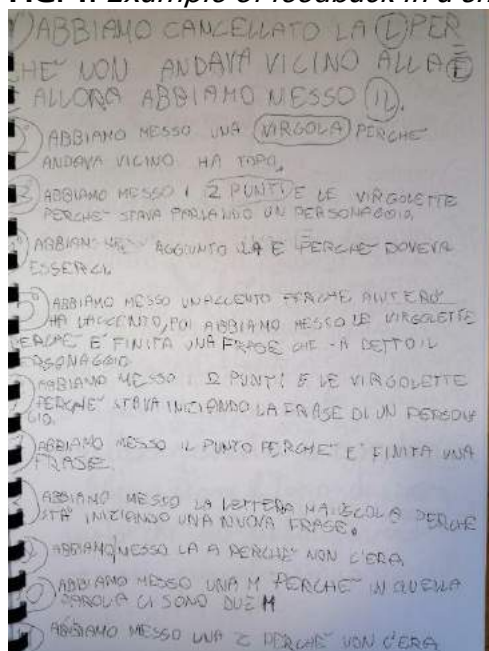 1°) ABBIAMO CANCELLATO LA (L) PER
CHE' NON ANDAVA VICINO ALLA E
E ALLORA ABBIAMO MESSO (IL).
2°) ABBIAMO MESSO UNA (VIRGOLA) PERCHE'
ANDAVA VICINO HA TOPO.
3) ABBIAMO MESSO I 2 PUNTI E LE VIRGOLETTE
PERCHE' STAVA PARLANDO UN PERSONAGGIO.
AGGIUNTO LA E PERCHE' DOVEVA
ESSERCI.
5°) ABBIAMO MESSO UN ACCENTO PERCHE AIUTERO'
HA L'ACCENTO, POI ABBIAMO MESSO LE VIRGOLETTE
PERCHE' E' FINITA UNA FRASE CHE HA DETTO IL
PERSONAGGIO
ABBIAMO MESSO I 2 PUNTI E LE VIRGOLETTE
PERCHE' STAVA INIZIANDO LA FRASE DI UN PERSONAG
GIO.
ABBIAMO MESSO IL PUNTO PERCHE' E' FINITA UNA
FRASE.
ABBIAMO MESSO LA LETTERA MAIUSCOLA PERCHE
STA' INIZIANDO UNA NUOVA FRASE.
ABBIAMO MESSO LA A PERCHE' NON C'ERA.
ABBIAMO MESSO UNA M PERCHE' IN QUELLA
PAROLA CI SONO DUE M
ABBIAMO MESSO UNA Z PERCHE' NON C'ERA